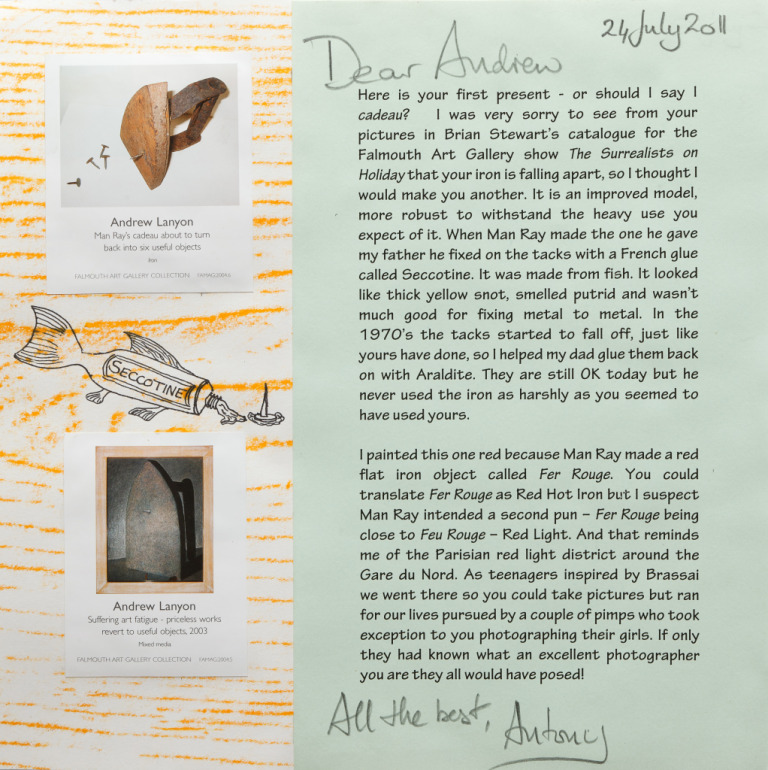 Andrew Lanyon
Man Ray's cadeau about to turn
back into six useful objects
Iron
FALMOUTH ART GALLERY COLLECTION
SECCOTINE
Andrew Lanyon
Suffering art fatigue - priceless works
revert to useful objects, 2003
Mixed media
FALMOUTH ART GALLERY COLLECTION
24 July 2011
Dear Andrew
Here is your first present - or should I say I
cadeau? I was very sorry to see from your
pictures in Brian Stewart's catalogue for the
Falmouth Art Gallery show The Surrealists on
Holiday that your iron is falling apart, so I thought I
would make you another. It is an improved model,
more robust to withstand the heavy use you
expect of it. When Man Ray made the one he gave
my father he fixed on the tacks with a French glue
called Seccotine. It was made from fish. It looked
like thick yellow snot, smelled putrid and wasn't
much good for fixing metal to metal. In the
1970's the tacks started to fall off, just like
yours have done, so I helped my dad glue them back
on with Araldite. They are still OK today but he
never used the iron as harshly as you seemed to
have used yours.
I painted this one red because Man Ray made a red
flat iron object called Fer Rouge. You could
translate Fer Rouge as Red Hot Iron but I suspect
Man Ray intended a second pun – Fer Rouge being
close to Feu Rouge – Red Light. And that reminds
me of the Parisian red light district around the
Gare du Nord. As teenagers inspired by Brassai
we went there so you could take pictures but ran
for our lives pursued by a couple of pimps who took
exception to you photographing their girls. If only
they had known what an excellent photographer
you are they all would have posed!
All the best, Antony